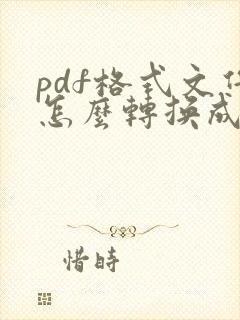 pdf格式文件
怎麼轉換成
惜時